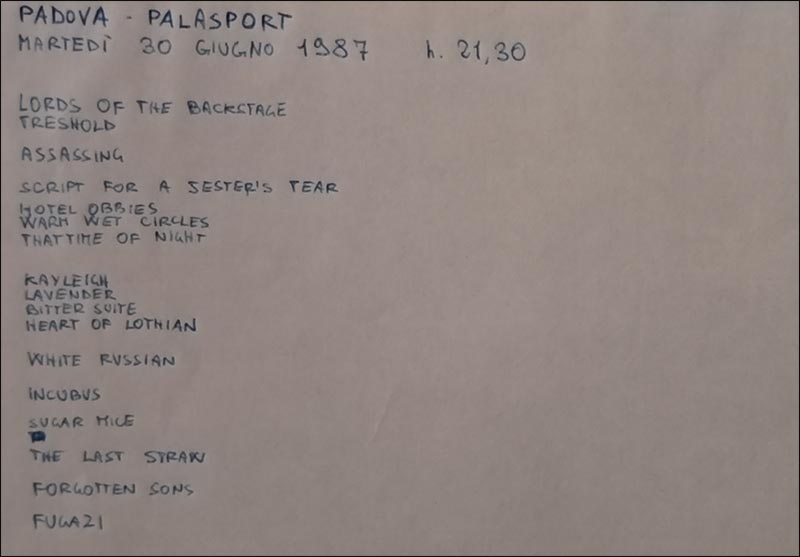 PADOVA - PALASPORT
MARTEDÌ 30 GIUGNO 1987 h. 21,30
LORDS OF THE BACKSTAGE
TRESHOLD
ASSASSING
SCRIPT FOR A JESTER'S TEAR
HOTEL OBBIES
WARM WET CIRCLES
THAT TIME OF NIGHT
KAYLEIGH
LAVENDER
BITTER SUITE
HEART OF LOTHIAN
WHITE RUSSIAN
INCUBUS
SUGAR MICE
THE LAST STRAW
FORGOTTEN SONS
FUGAZI